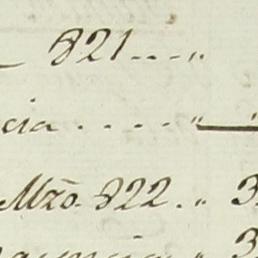 821...."
cia ....."
Mžo. 822. " 3
"3